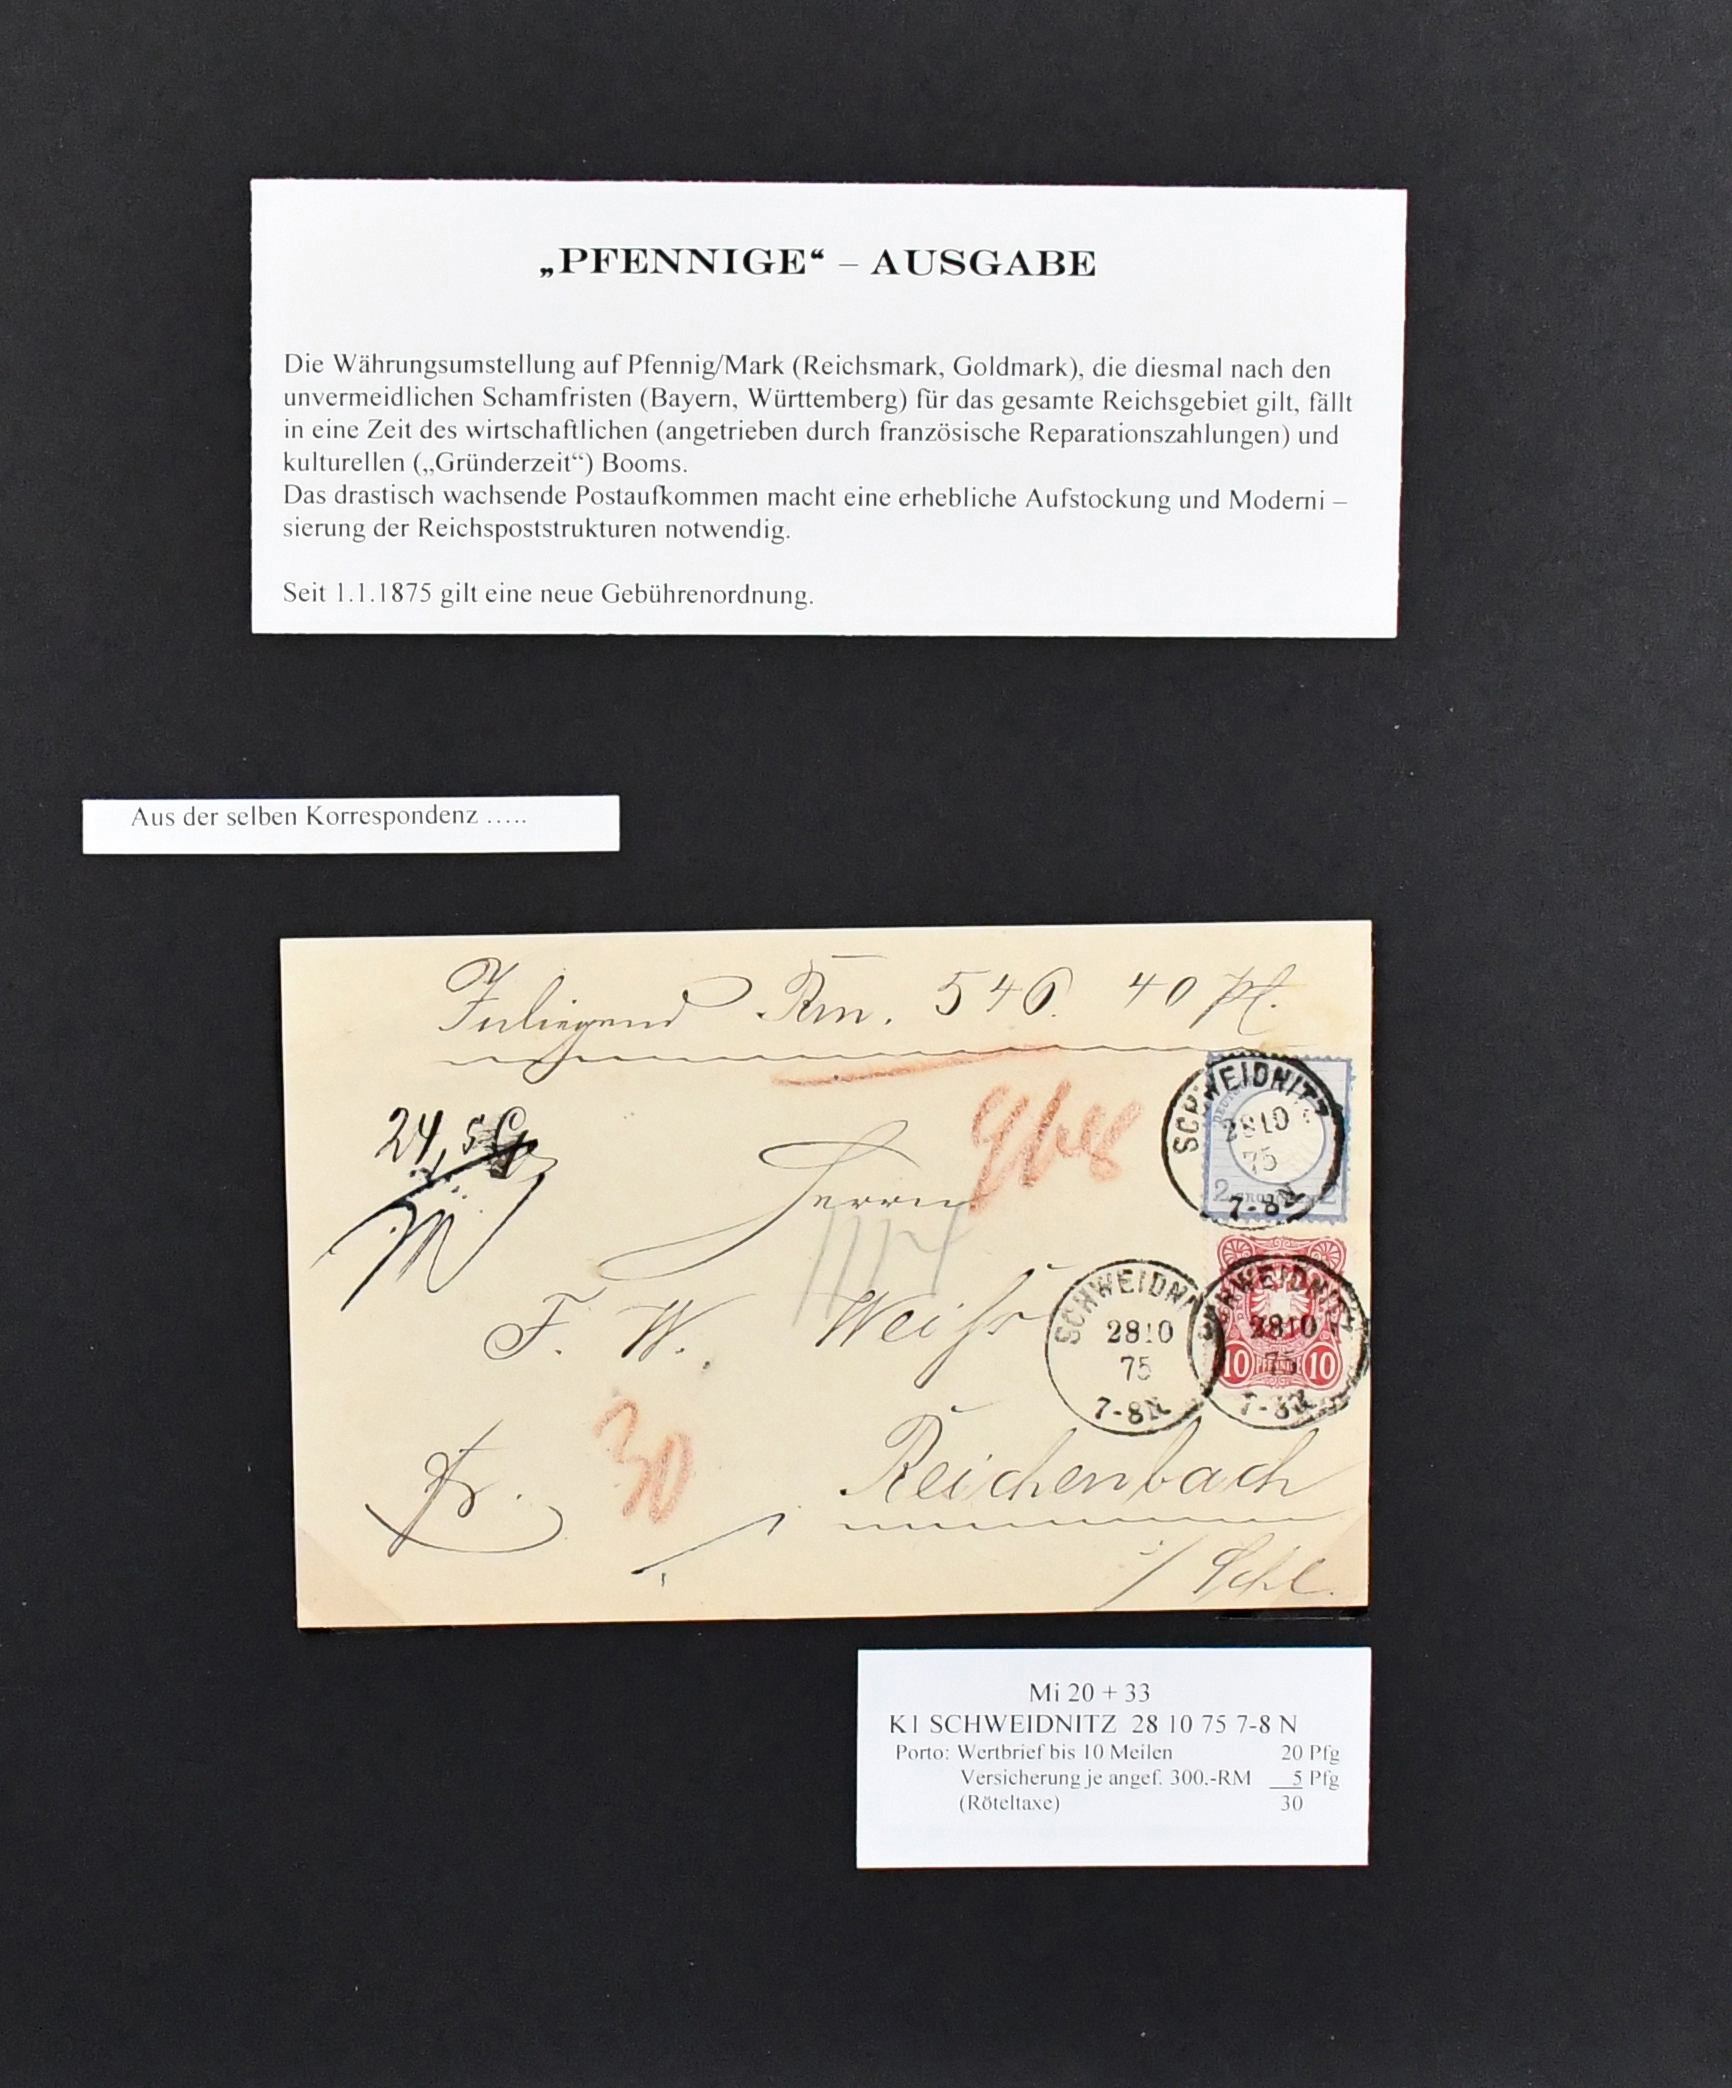 „PFENNIGE“ – AUSGABE
Die Währungsumstellung auf Pfennig/Mark (Reichsmark, Goldmark), die diesmal nach den
unvermeidlichen Schamfristen (Bayern, Württemberg) für das gesamte Reichsgebiet gilt, fällt
in eine Zeit des wirtschaftlichen (angetrieben durch französische Reparationszahlungen) und
kulturellen („Gründerzeit“) Booms.
Das drastisch wachsende Postaufkommen macht eine erhebliche Aufstockung und Moderni –
sierung der Reichspoststrukturen notwendig.
Seit 1.1.1875 gilt eine neue Gebührenordnung.
Aus der selben Korrespondenz …..
Inliegend Rm. 546. 40 Pf.
SCHWEIDNITZ
2810
75
7-8N
2 2
24,5 G
Herrn
F. W. Weiß
SCHWEIDNI
2810
75
7-8N
SCHWEIDNITZ
2810
75
7-8N
10 PFENNIGE 10
30
Reichenbach
i/ Schl.
Mi 20 + 33
K1 SCHWEIDNITZ 28 10 75 7-8 N
Porto: Wertbrief bis 10 Meilen 20 Pfg
Versicherung je angef. 300.-RM 5 Pfg
(Röteltaxe) 30